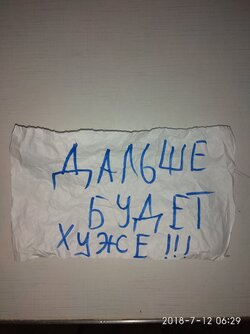 ДАЛЬШЕ
БУДЕТ
ХУЖЕ!!!
2018-7-12 06:29